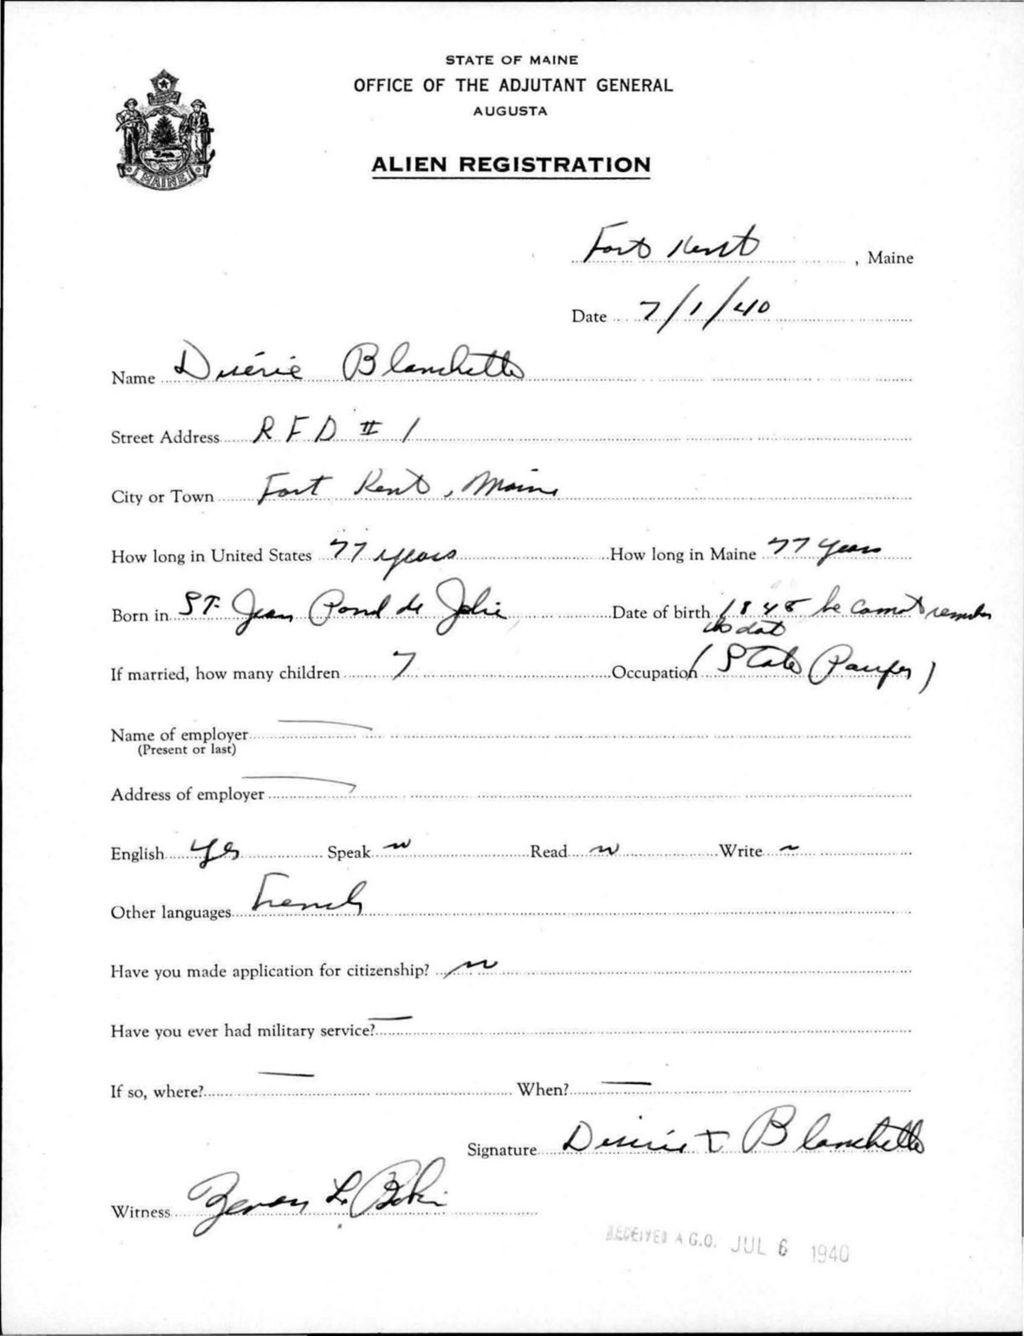 STATE OF MAINE
OFFICE OF THE ADJUTANT GENERAL
AUGUSTA
MAINE
ALIEN REGISTRATION
Fort Kent, Maine
Date 7/1/40
Name Blanchette
Street Address R F D # 1
City or Town Fort Kent, Maine
How long in United States 77 years How long in Maine 77 years
Born in St. Jean Date of birth he cannot remember
If married, how many children 7 Occupation (State Pauper)
Name of employer
(Present or last)
Address of employer
English Yes Speak Read Write
Other languages French
Have you made application for citizenship?
Have you ever had military service? —
If so, where? — When? —
Signature Blanchette
Witness L.
RECEIVED A.G.O. JUL 6 1940